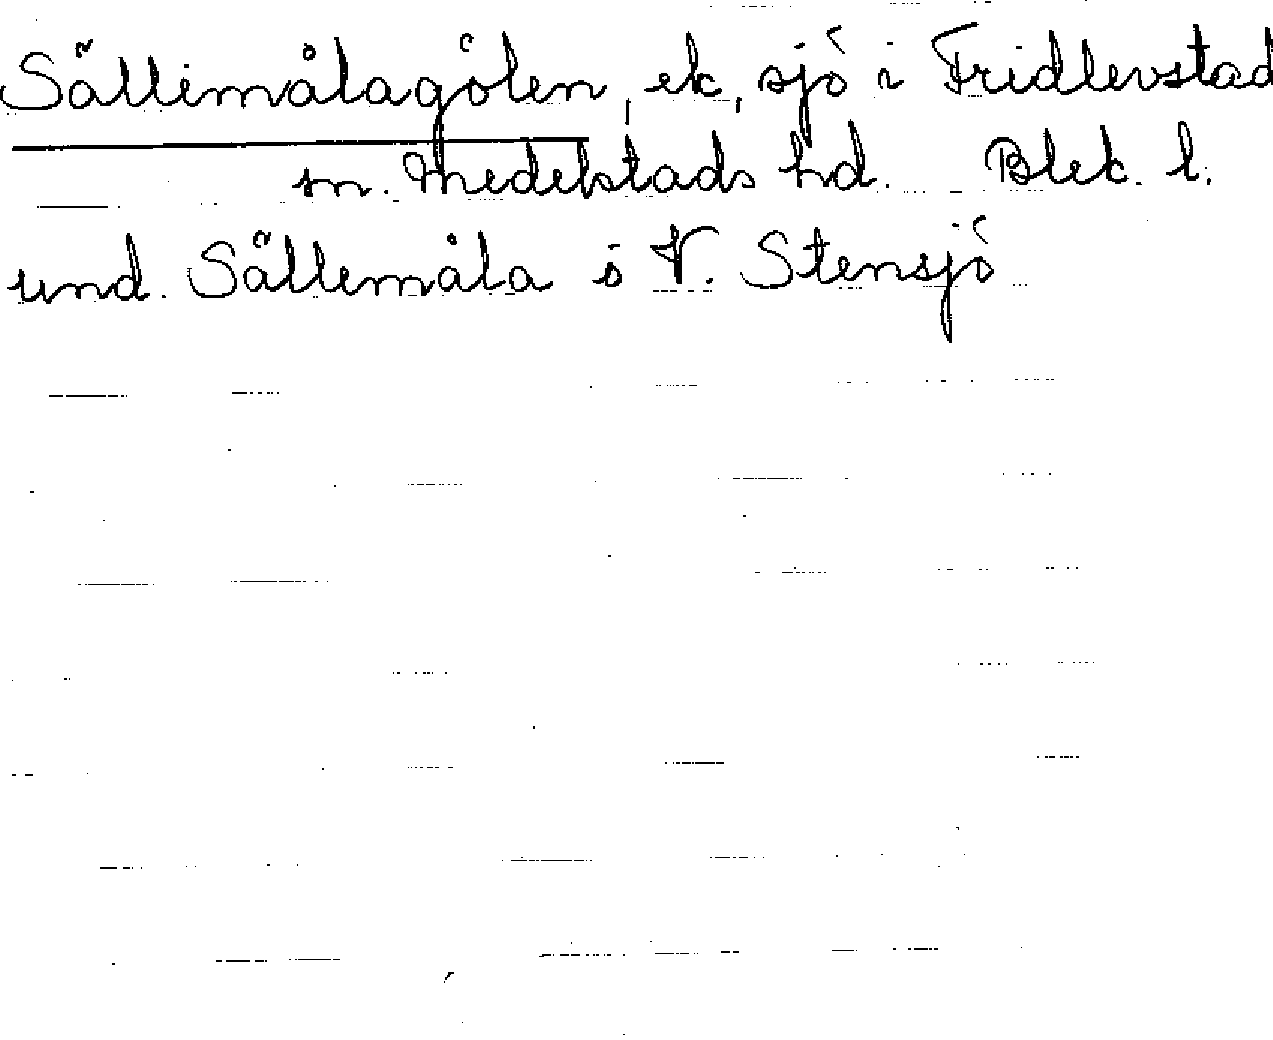 Sällimålagölen, ek, sjö i Fridlevstad
sn. Medelstads hd. Blek. l.
und. Sällemåla i V. Stensjö